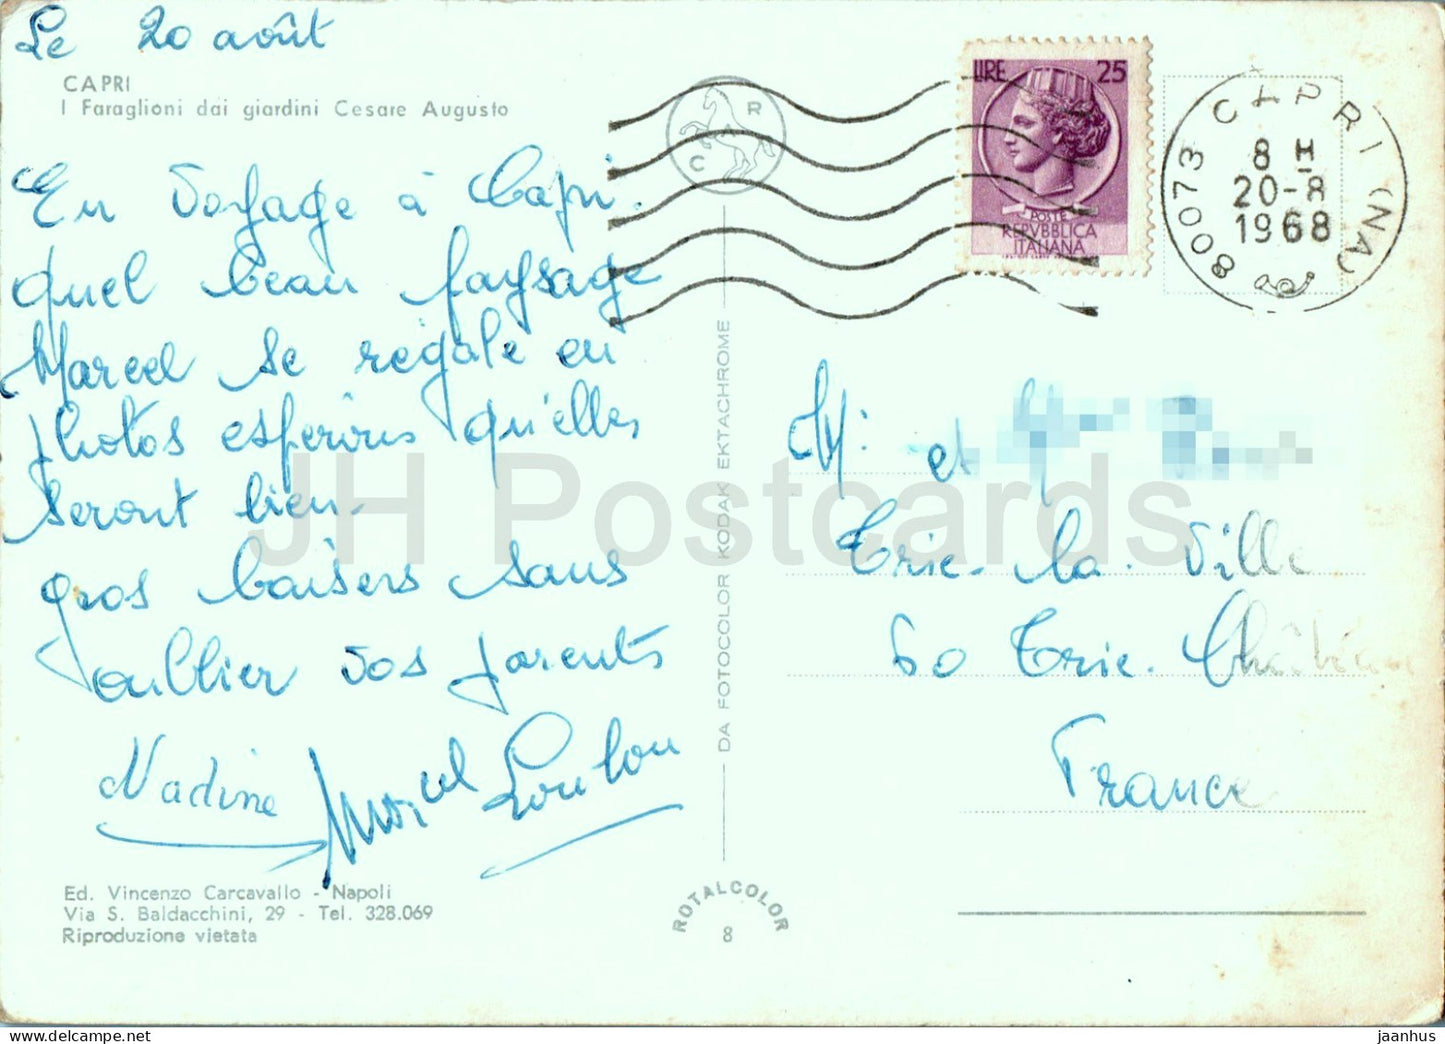 Le 20 août
CAPRI
I Faraglioni dai giardini Cesare Augusto
En voyage à Capri.
quel beau paysage
Marcel se régale en
photos espérons qu'elles
seront bien.
gros baisers sans
oublier vos parents
Nadine Marcel Loulou
Ed. Vincenzo Carcavallo - Napoli
Via S. Baldacchini, 29 - Tel. 328.069
Riproduzione vietata
R
C
DA FOTOCOLOR KODAK EKTACHROME
ROTALCOLOR
8
LIRE 25
POSTE
REPVBBLICA
ITALIANA
80073 CAPRI (NA)
8 H
20-8
1968
M. et
Trie-la-Ville
60 Trie-Château
France
JH Postcards
www.delcampe.net
jaanhus